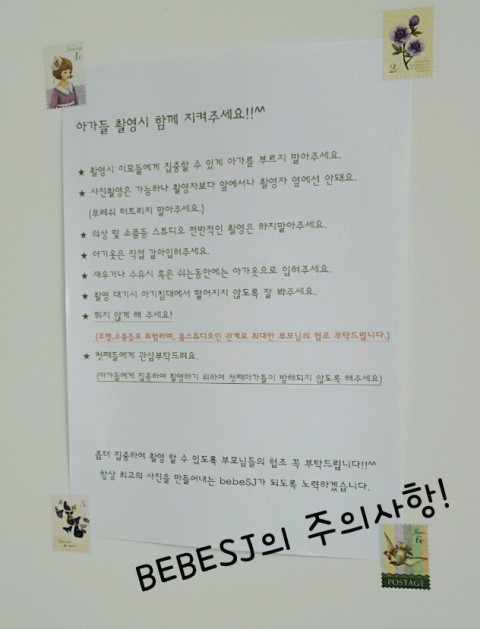 아가들 촬영시 함께 지켜주세요!!^^
★ 촬영시 이모들에게 집중할 수 있게 아가를 부르지 말아주세요.
★ 사진촬영은 가능하나 촬영자보다 앞에서나 촬영자 옆에선 안돼요.
(후레쉬 터트리지 말아주세요.)
★ 의상 및 소품등 스튜디오 전반적인 촬영은 하지말아주세요.
★ 아기옷은 직접 갈아입혀주세요.
★ 재우거나 수유시 혹은 쉬는동안에는 아가옷으로 입혀주세요.
★ 촬영 대기시 아기침대에서 떨어지지 않도록 잘 봐주세요.
★ 뛰지 않게 해 주세요!
(조명,소품들로 위험하며, 홈스튜디오인 관계로 최대한 부모님의 협조 부탁드립니다.)
★ 첫째들에게 관심부탁드려요.
(아가들에게 집중하여 촬영하기 위하여 첫째아가들이 방해되지 않도록 해주세요)
좀더 집중하여 촬영 할 수 있도록 부모님들의 협조 꼭 부탁드립니다!!^^
항상 최고의 사진을 만들어내는 bebeSJ가 되도록 노력하겠습니다.
BEBESJ의 주의사항!
1c
2
3
6c
POSTAGE